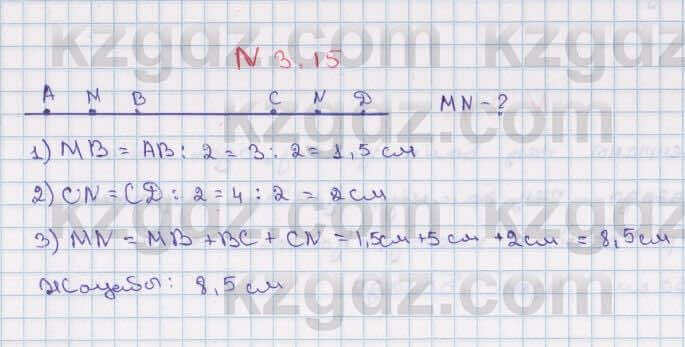 N 3.15
A M B C N D MN - ?
1) MB = AB : 2 = 3 : 2 = 1,5 см
2) CN = CD : 2 = 4 : 2 = 2 см
3) MN = MB + BC + CN = 1,5 см + 5 см + 2 см = 8,5 см
Жауабы: 8,5 см
kzgdz.com
kzgdz.com
kzgdz.com
kzgdz.com